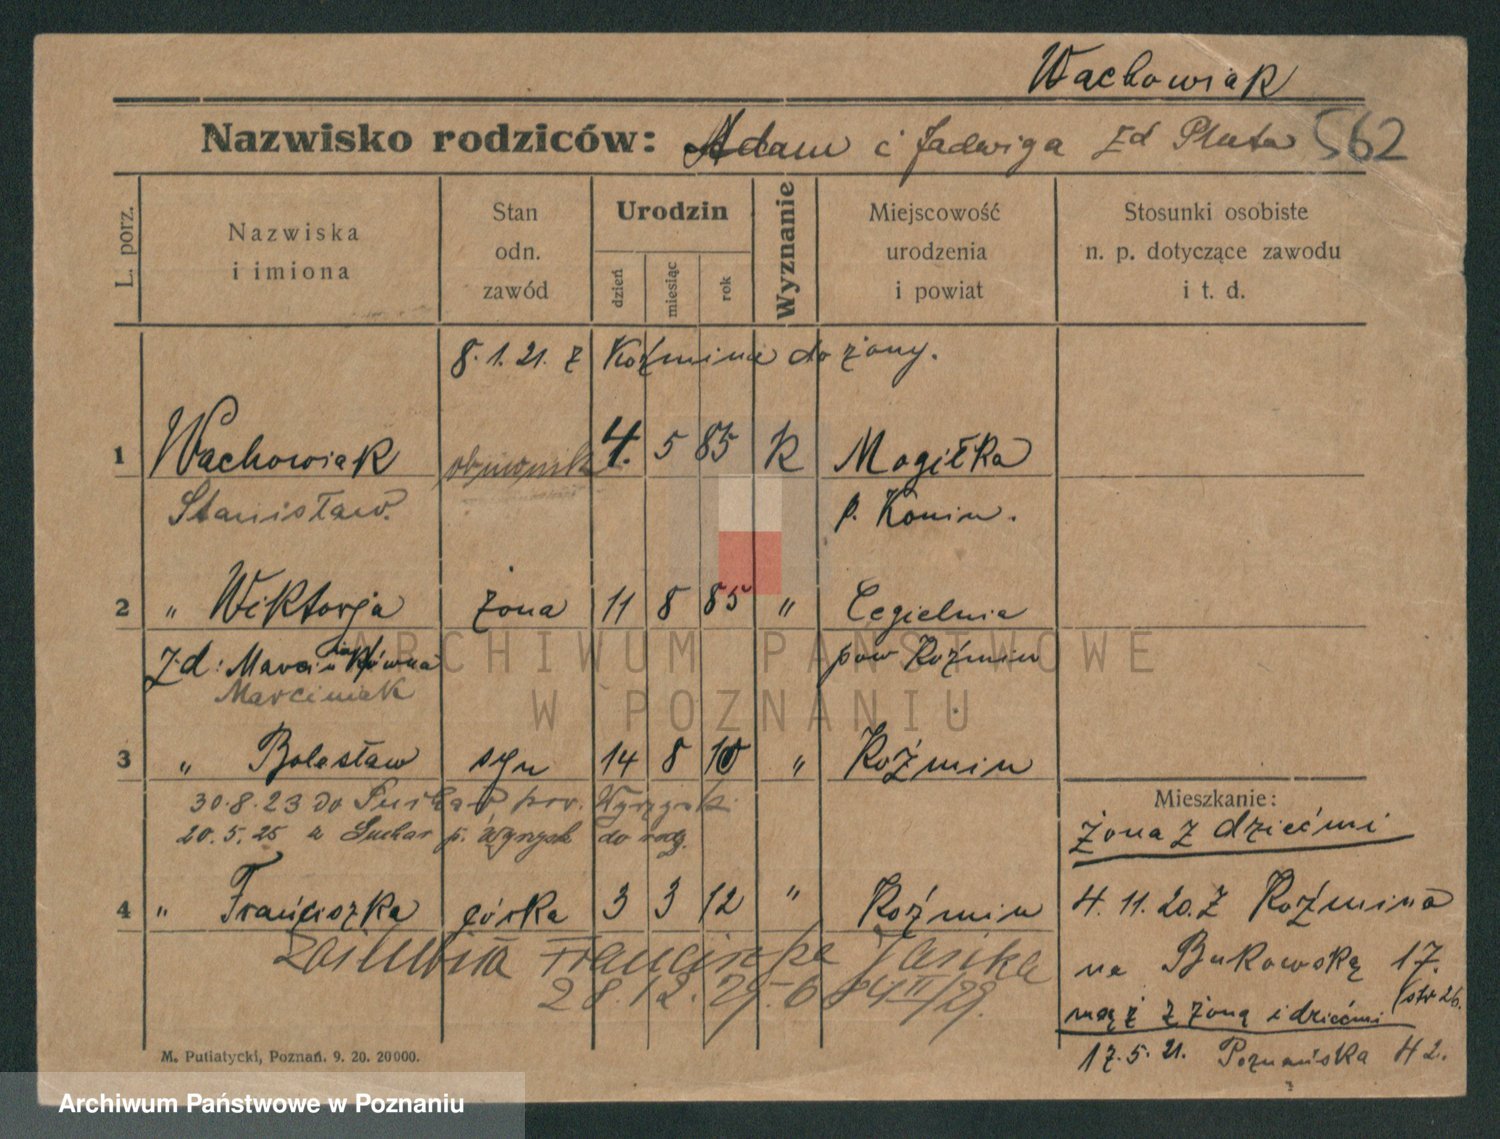 Wachowiak
Nazwisko rodziców: Adam i Jadwiga zd Pluta 562
L. porz.
Nazwiska
i imiona
Stan
odn.
zawód
Urodzin
dzień
miesiąc
rok
Wyznanie
Miejscowość
urodzenia
i powiat
Stosunki osobiste
n. p. dotyczące zawodu
i t. d.
8.1.21. z Koźmina do żony.
1 Wachowiak 4. 5 85 k Mogiłka
Stanisław. p. Konin.
2 " Wiktorja żona 11 8 85 " Cegielnia
zd: pow Koźmin
Marciniak
3 " Bolesław syn 14 8 10 " Koźmin
30.8.23 do pow. Wyrzysk.
20.5.25 z p. Wyrzysk do rodz.
4 " Franciszka córka 3 3 12 " Koźmin
zaślubiła Franciszka Jasika
28.12.29.
Mieszkanie:
żona z dziećmi
4.11.20. z Koźmina
na Bukowską 17.
mąż z żoną i dziećmi
17.5.21. Poznańska 42.
M. Putiatycki, Poznań. 9. 20. 20000.
ARCHIWUM PAŃSTWOWE
W POZNANIU
Archiwum Państwowe w Poznaniu